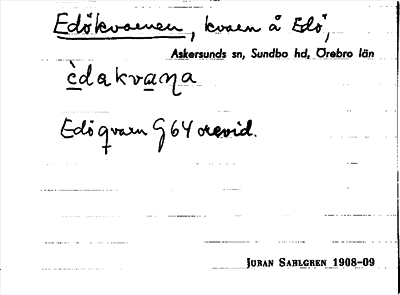 Edökvarnen, kvarn å Edö,
Askersunds sn, Sundbo hd, Örebro län
èdakvaṇa
Edö qvarn G64 orevid.
JURAN SAHLGREN 1908-09